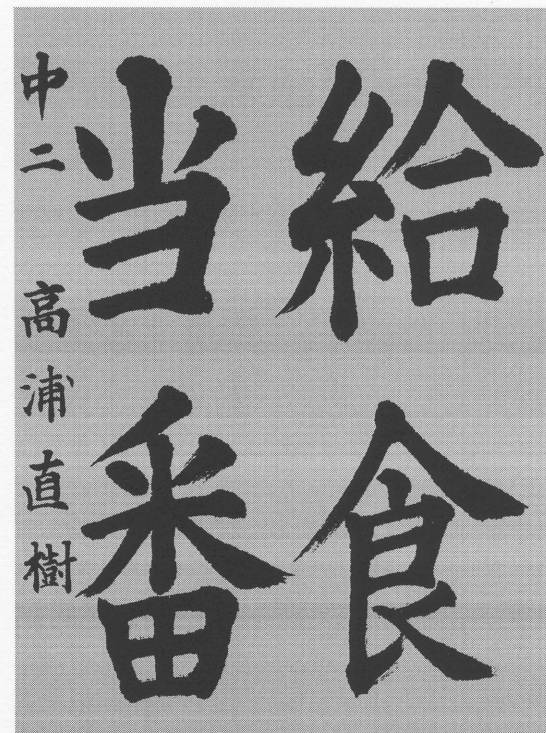 給食
当番
中二 高浦直樹